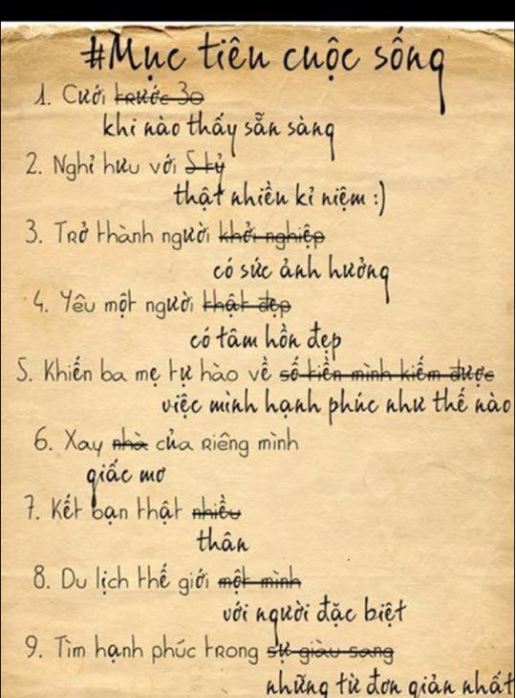 #Mục tiêu cuộc sống
1. Cưới trước 30
khi nào thấy sẵn sàng
2. Nghỉ hưu với 5 tỷ
thật nhiều kỉ niệm :)
3. Trở thành người khởi nghiệp
có sức ảnh hưởng
4. Yêu một người thật đẹp
có tâm hồn đẹp
5. Khiến ba mẹ tự hào về số tiền mình kiếm được
việc mình hạnh phúc như thế nào
6. Xay nhà của riêng mình
giấc mơ
7. Kết bạn thật nhiều
thân
8. Du lịch thế giới một mình
với người đặc biệt
9. Tìm hạnh phúc trong sự giàu sang
những từ đơn giản nhất